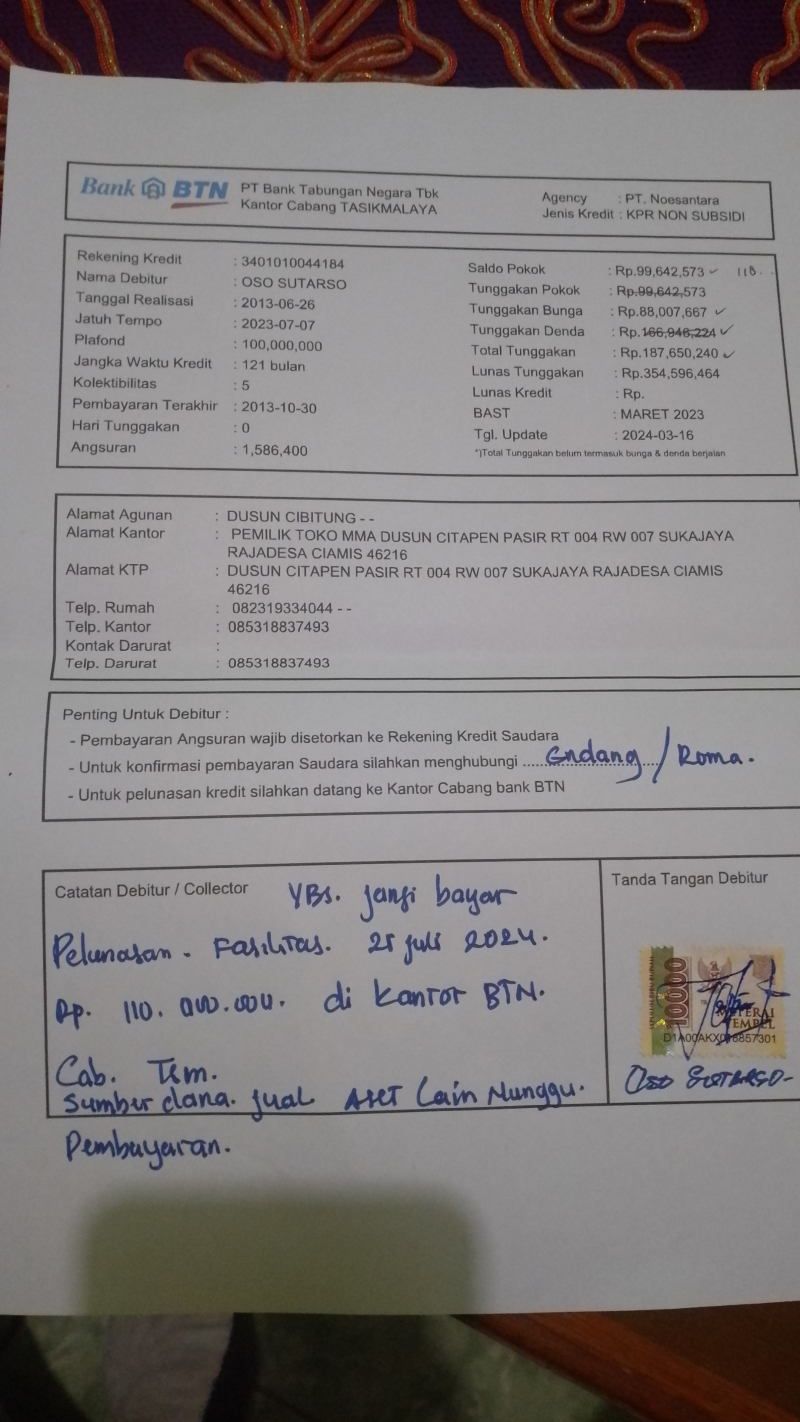 Bank BTN PT Bank Tabungan Negara Tbk
Kantor Cabang TASIKMALAYA
Agency : PT. Noesantara
Jenis Kredit : KPR NON SUBSIDI
Rekening Kredit : 3401010044184
Nama Debitur : OSO SUTARSO
Tanggal Realisasi : 2013-06-26
Jatuh Tempo : 2023-07-07
Plafond : 100,000,000
Jangka Waktu Kredit : 121 bulan
Kolektibilitas : 5
Pembayaran Terakhir : 2013-10-30
Hari Tunggakan : 0
Angsuran : 1,586,400
Saldo Pokok : Rp.99,642,573
Tunggakan Pokok : Rp.99,642,573
Tunggakan Bunga : Rp.88,007,667
Tunggakan Denda : Rp.166,946,224
Total Tunggakan : Rp.187,650,240
Lunas Tunggakan : Rp.354,596,464
Lunas Kredit : Rp.
BAST : MARET 2023
Tgl. Update : 2024-03-16
*)Total Tunggakan belum termasuk bunga & denda berjalan
Alamat Agunan : DUSUN CIBITUNG - -
Alamat Kantor : PEMILIK TOKO MMA DUSUN CITAPEN PASIR RT 004 RW 007 SUKAJAYA
RAJADESA CIAMIS 46216
Alamat KTP : DUSUN CITAPEN PASIR RT 004 RW 007 SUKAJAYA RAJADESA CIAMIS
46216
Telp. Rumah : 082319334044 - -
Telp. Kantor : 085318837493
Kontak Darurat :
Telp. Darurat : 085318837493
Penting Untuk Debitur :
- Pembayaran Angsuran wajib disetorkan ke Rekening Kredit Saudara
- Untuk konfirmasi pembayaran Saudara silahkan menghubungi ...... Endang / Roma.
- Untuk pelunasan kredit silahkan datang ke Kantor Cabang bank BTN
Catatan Debitur / Collector YBs. janji bayar
Pelunasan. Fasilitas. 25 juli 2024.
Rp. 110.000.000. di Kantor BTN.
Cab. Tsm.
Sumber dana. jual Aset Lain Nunggu.
Pembayaran.
Tanda Tangan Debitur
10000
METERAI
TEMPEL
OSO SUTARSO